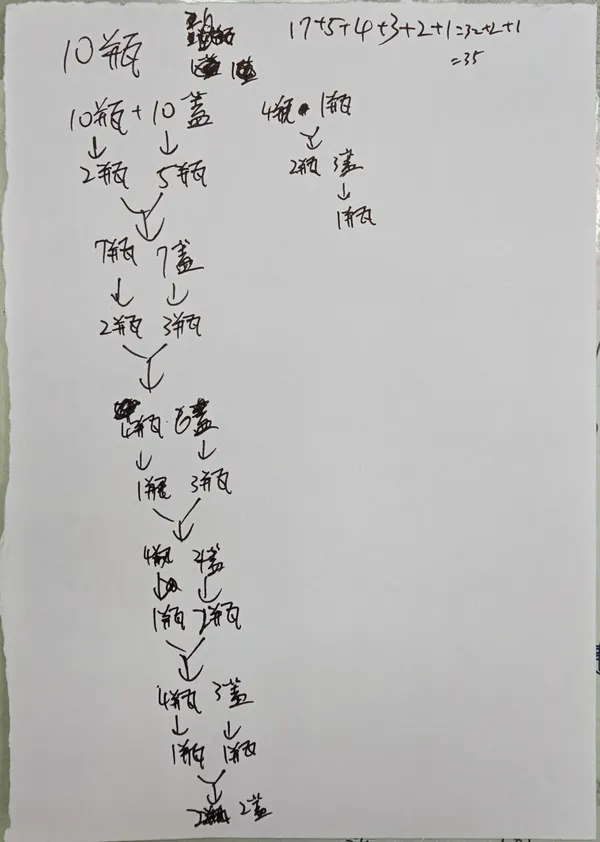 10瓶
17+5+4+3+2+1=32+2+1
=35
10瓶+10盖
2瓶 5瓶
7瓶 7盖
2瓶 3瓶
4瓶 6盖
1瓶 3瓶
4瓶 4盖
1瓶 2瓶
4瓶 3盖
1瓶 1瓶
2盖
4瓶 1瓶
2瓶 3盖
1瓶